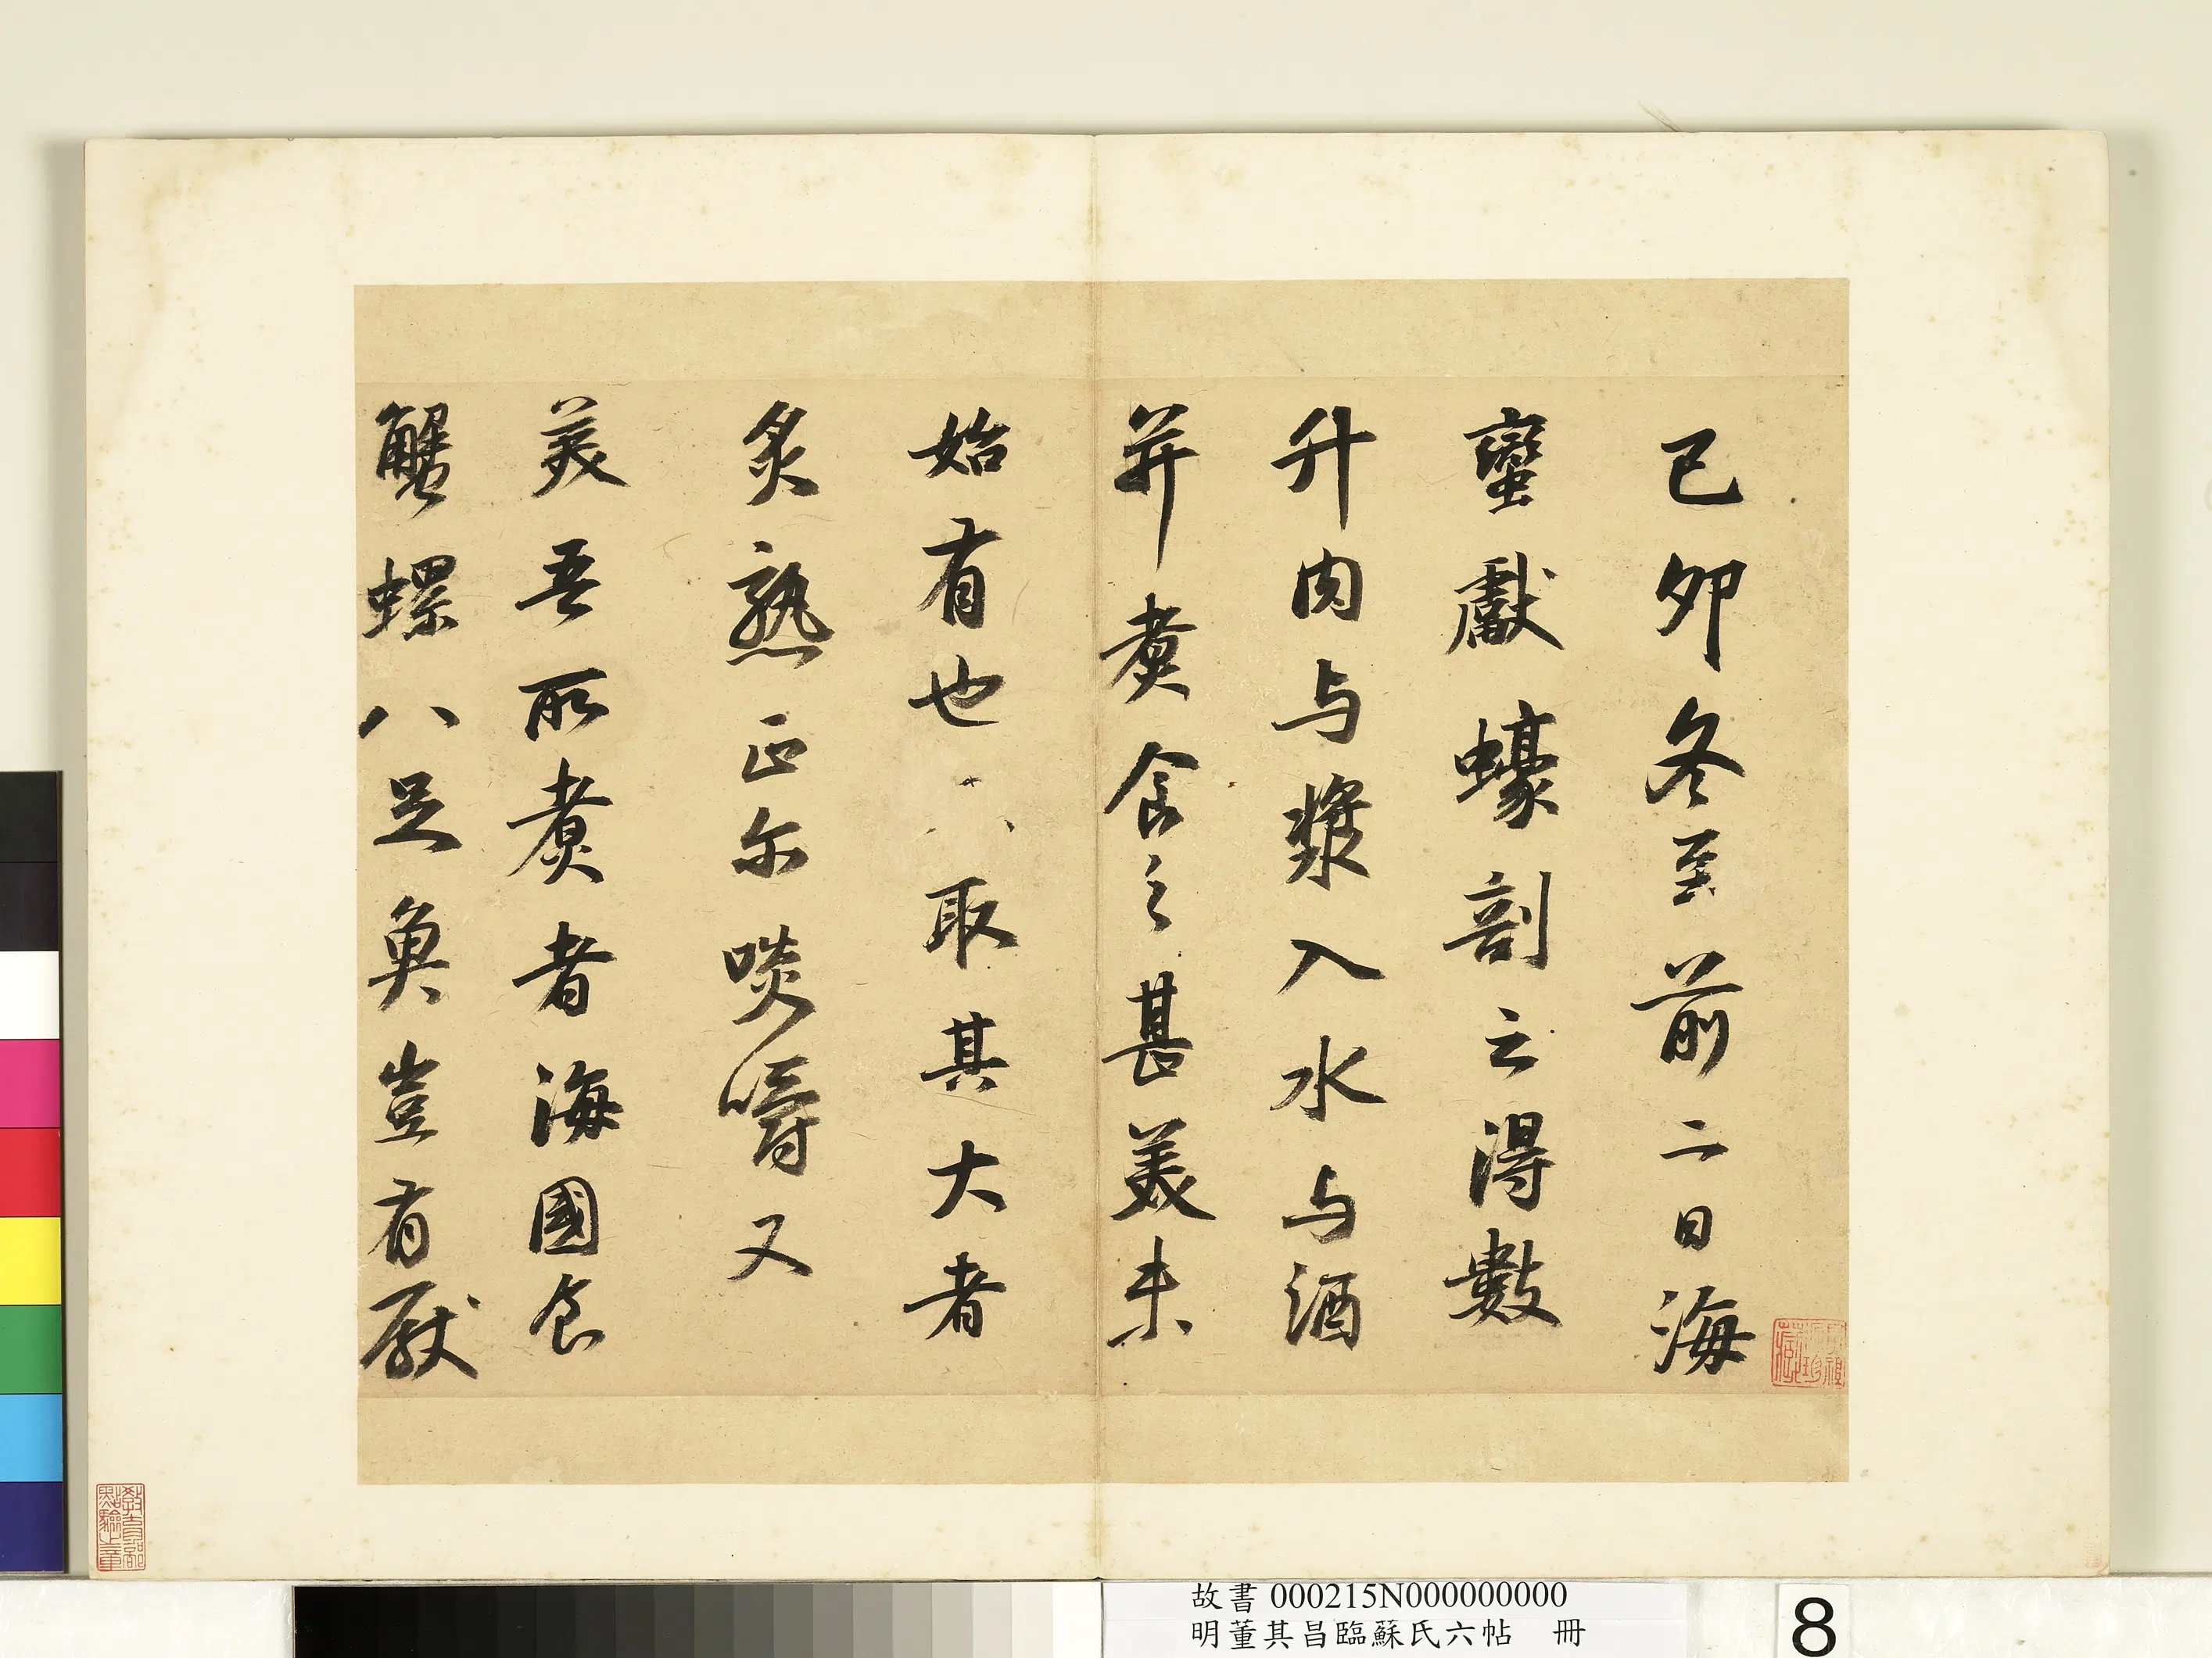 己卯冬至前二日海
蠻獻蠔剖之得數
升肉与漿入水与酒
并煮食之甚美未
始有也取其大者
炙熟正尔啖嚼又
美吾所煮者海國食
蟹螺八足魚豈有厭
教育部點驗之章
故書 000215N000000000
明董其昌臨蘇氏六帖 冊
8